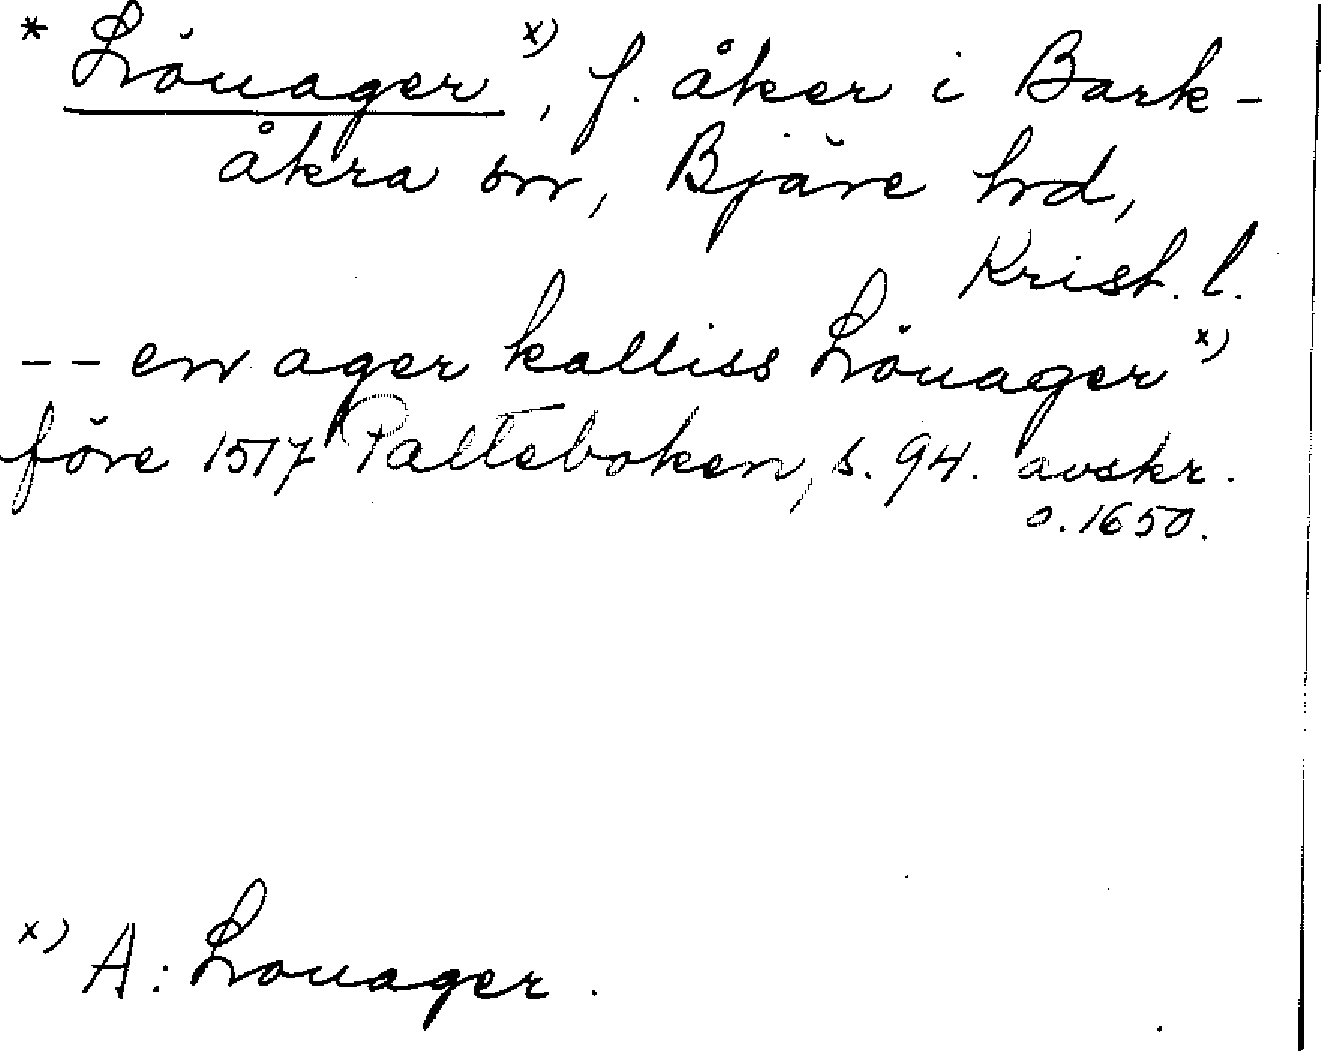 * Löuager x), f. åker i Bark-
åkra sn, Bjäre hd,
Krist. l.
-- en ager kalliss Löuager x)
före 1517 Palteboken, s. 94. avskr.
o. 1650.
x) A: Louager.